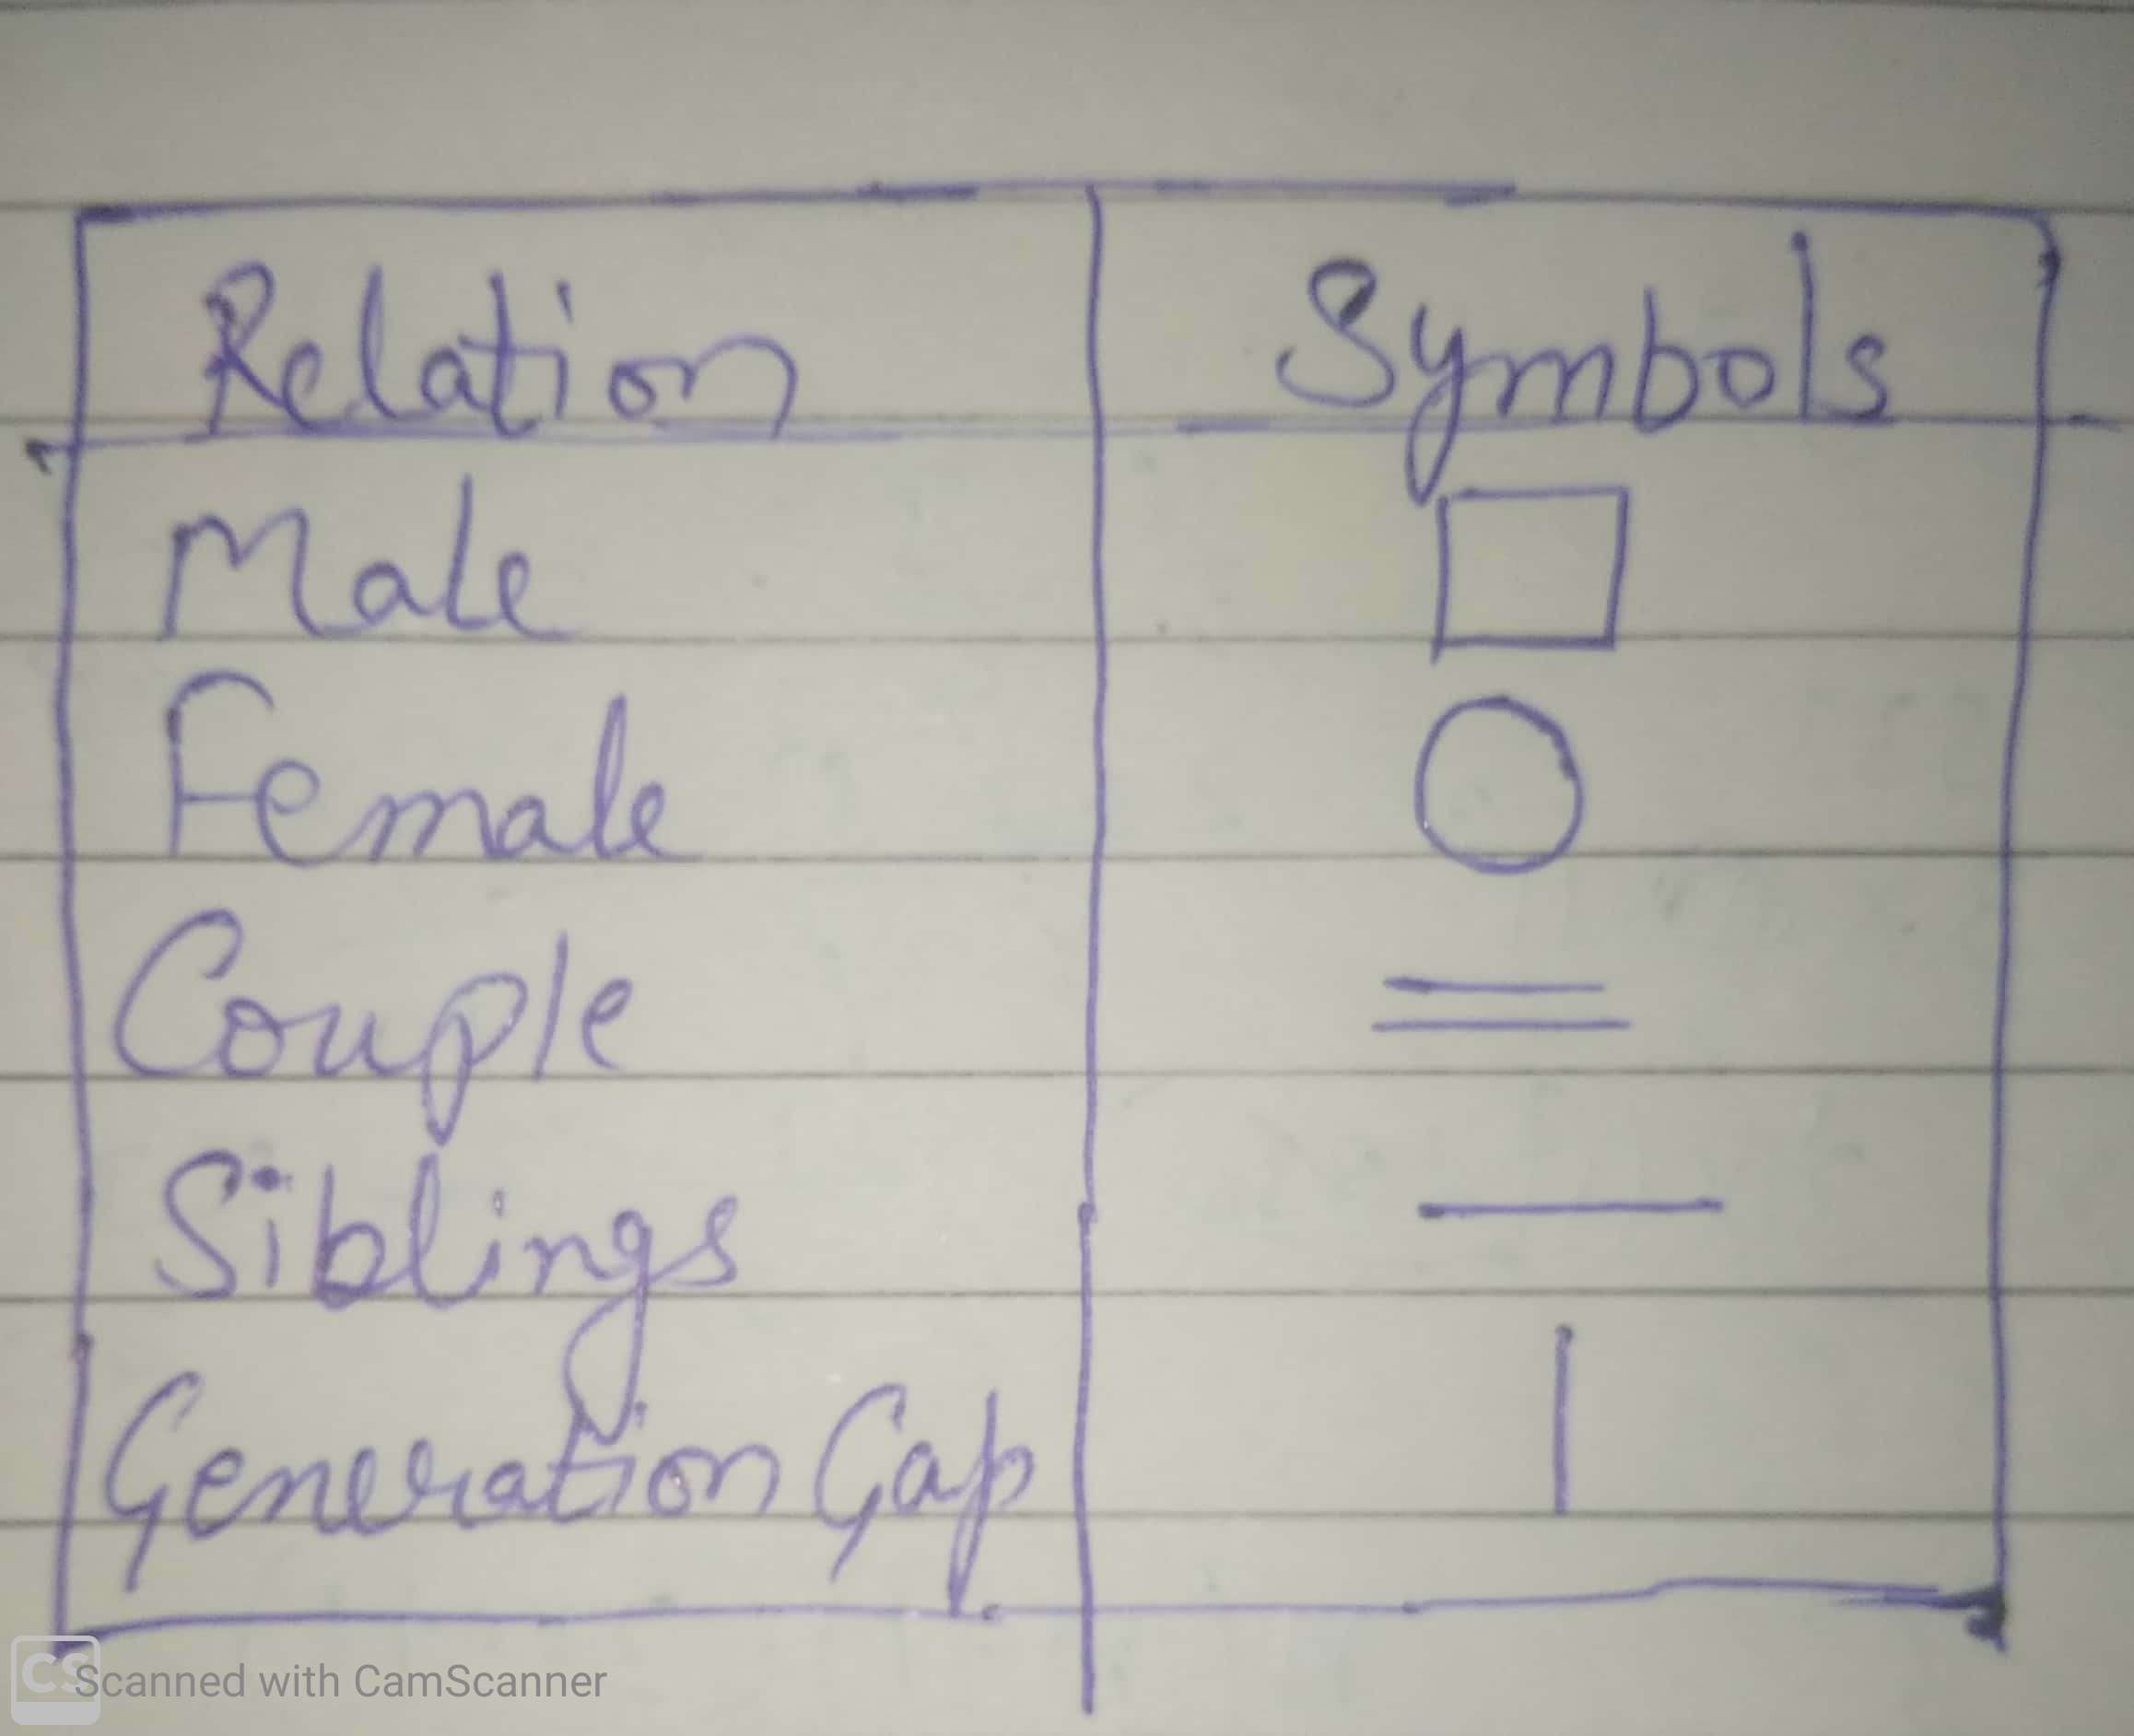 Relation Symbols
Male
Female
Couple
Siblings
Generation Gap
CS Scanned with CamScanner